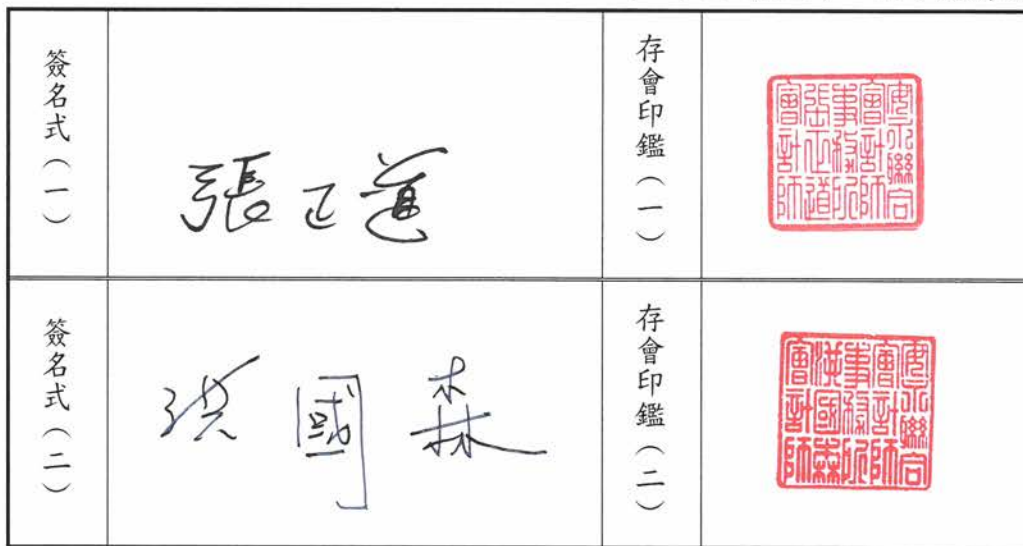 簽名式（一）
張正道
存會印鑑（一）
安永聯合
會計師
事務所
張正道
會計師
簽名式（二）
洪國森
存會印鑑（二）
安永聯合
會計師
事務所
洪國森
會計師